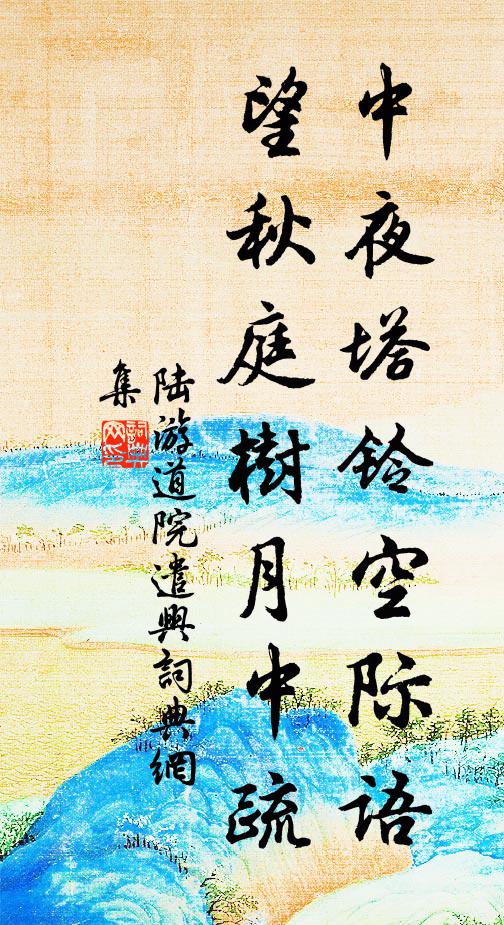 中夜塔铃空际语
望秋庭樹月中疏
陆游道院遣興詞典網
集